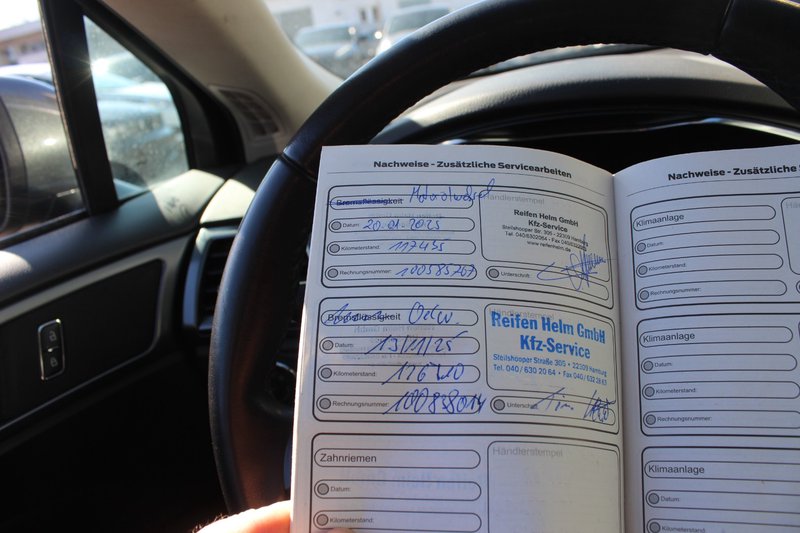 Nachweise - Zusätzliche Servicearbeiten
Bremsflüssigkeit Motorölwechsel
Händlerstempel
Datum: 20-01-2025
Kilometerstand: 117455
Rechnungsnummer: 100585267
Reifen Helm GmbH
Kfz-Service
Steilshooper Str. 305 • 22309 Hamburg
www.reifenhelm.de
Unterschrift:
Bremsflüssigkeit Ölw.
Datum: 13/11/25
Kilometerstand:
Rechnungsnummer: 100838014
Reifen Helm GmbH
Kfz-Service
Steilshooper Straße 305 • 22309 Hamburg
Tel. 040 / 630 20 64 • Fax 040 / 632 28 63
Unterschrift:
Zahnriemen
Händlerstempel
Datum:
Kilometerstand:
Nachweise - Zusätzliche
Klimaanlage
Datum:
Kilometerstand:
Rechnungsnummer:
Klimaanlage
Datum:
Kilometerstand:
Rechnungsnummer:
Klimaanlage
Datum:
Kilometerstand: